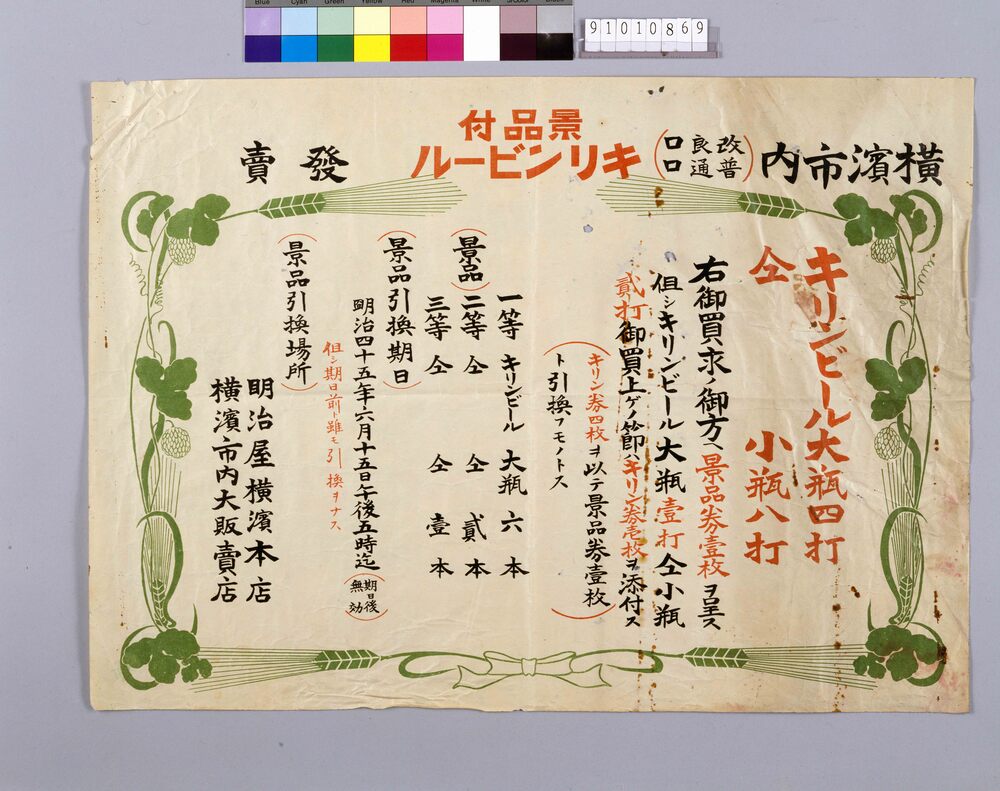 Blue Cyan Green Yellow Red Magenta White 3/Color Black
91010869
横濱市内
(改良口 普通口)
景品付
キリンビール
發賣
キリンビール大瓶四打
仝 小瓶八打
右御買求ノ御方ヘ景品券壹枚ヲ呈ス
但シキリンビール大瓶壹打仝小瓶
貳打御買上ゲノ節ハキリン券壱枚ヲ添付ス
(キリン券四枚ヲ以テ景品券壹枚
ト引換フモノトス)
(景品)
一等 キリンビール 大瓶 六本
二等 仝 仝 貳本
三等 仝 仝 壹本
(景品引換期日)
明治四十五年六月十五日午後五時迄(期日後無効)
但シ期日前ト雖モ引換ヲナス
(景品引換場所)
明治屋横濱本店
横濱市内大販賣店